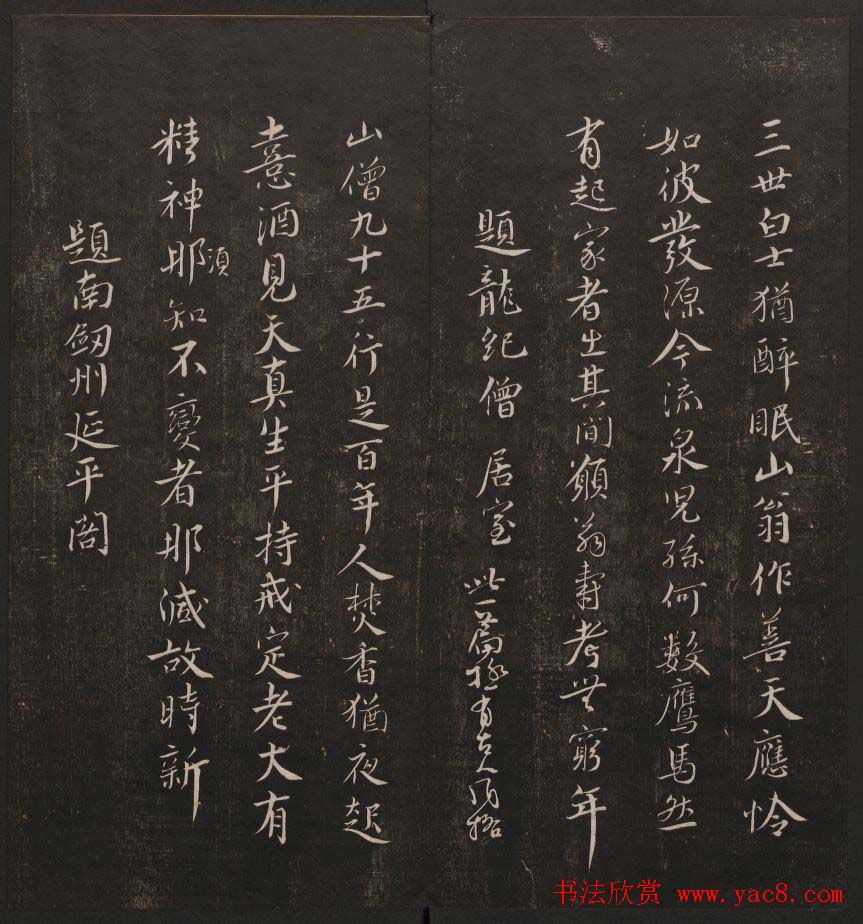 三世白士猶醉眠山翁作善天應怜
如彼發源今流泉児孫何數鷹馬然
有起家者出其間願翁壽考無窮年
題龍紀僧居室 此一篇極有古人風格
山僧九十五行是百年人焚香猶夜起
憙酒見天真生平持戒定老大有
精神那須知不變者那減故時新
題南劔州延平閣
书法欣赏 www.yac8.com